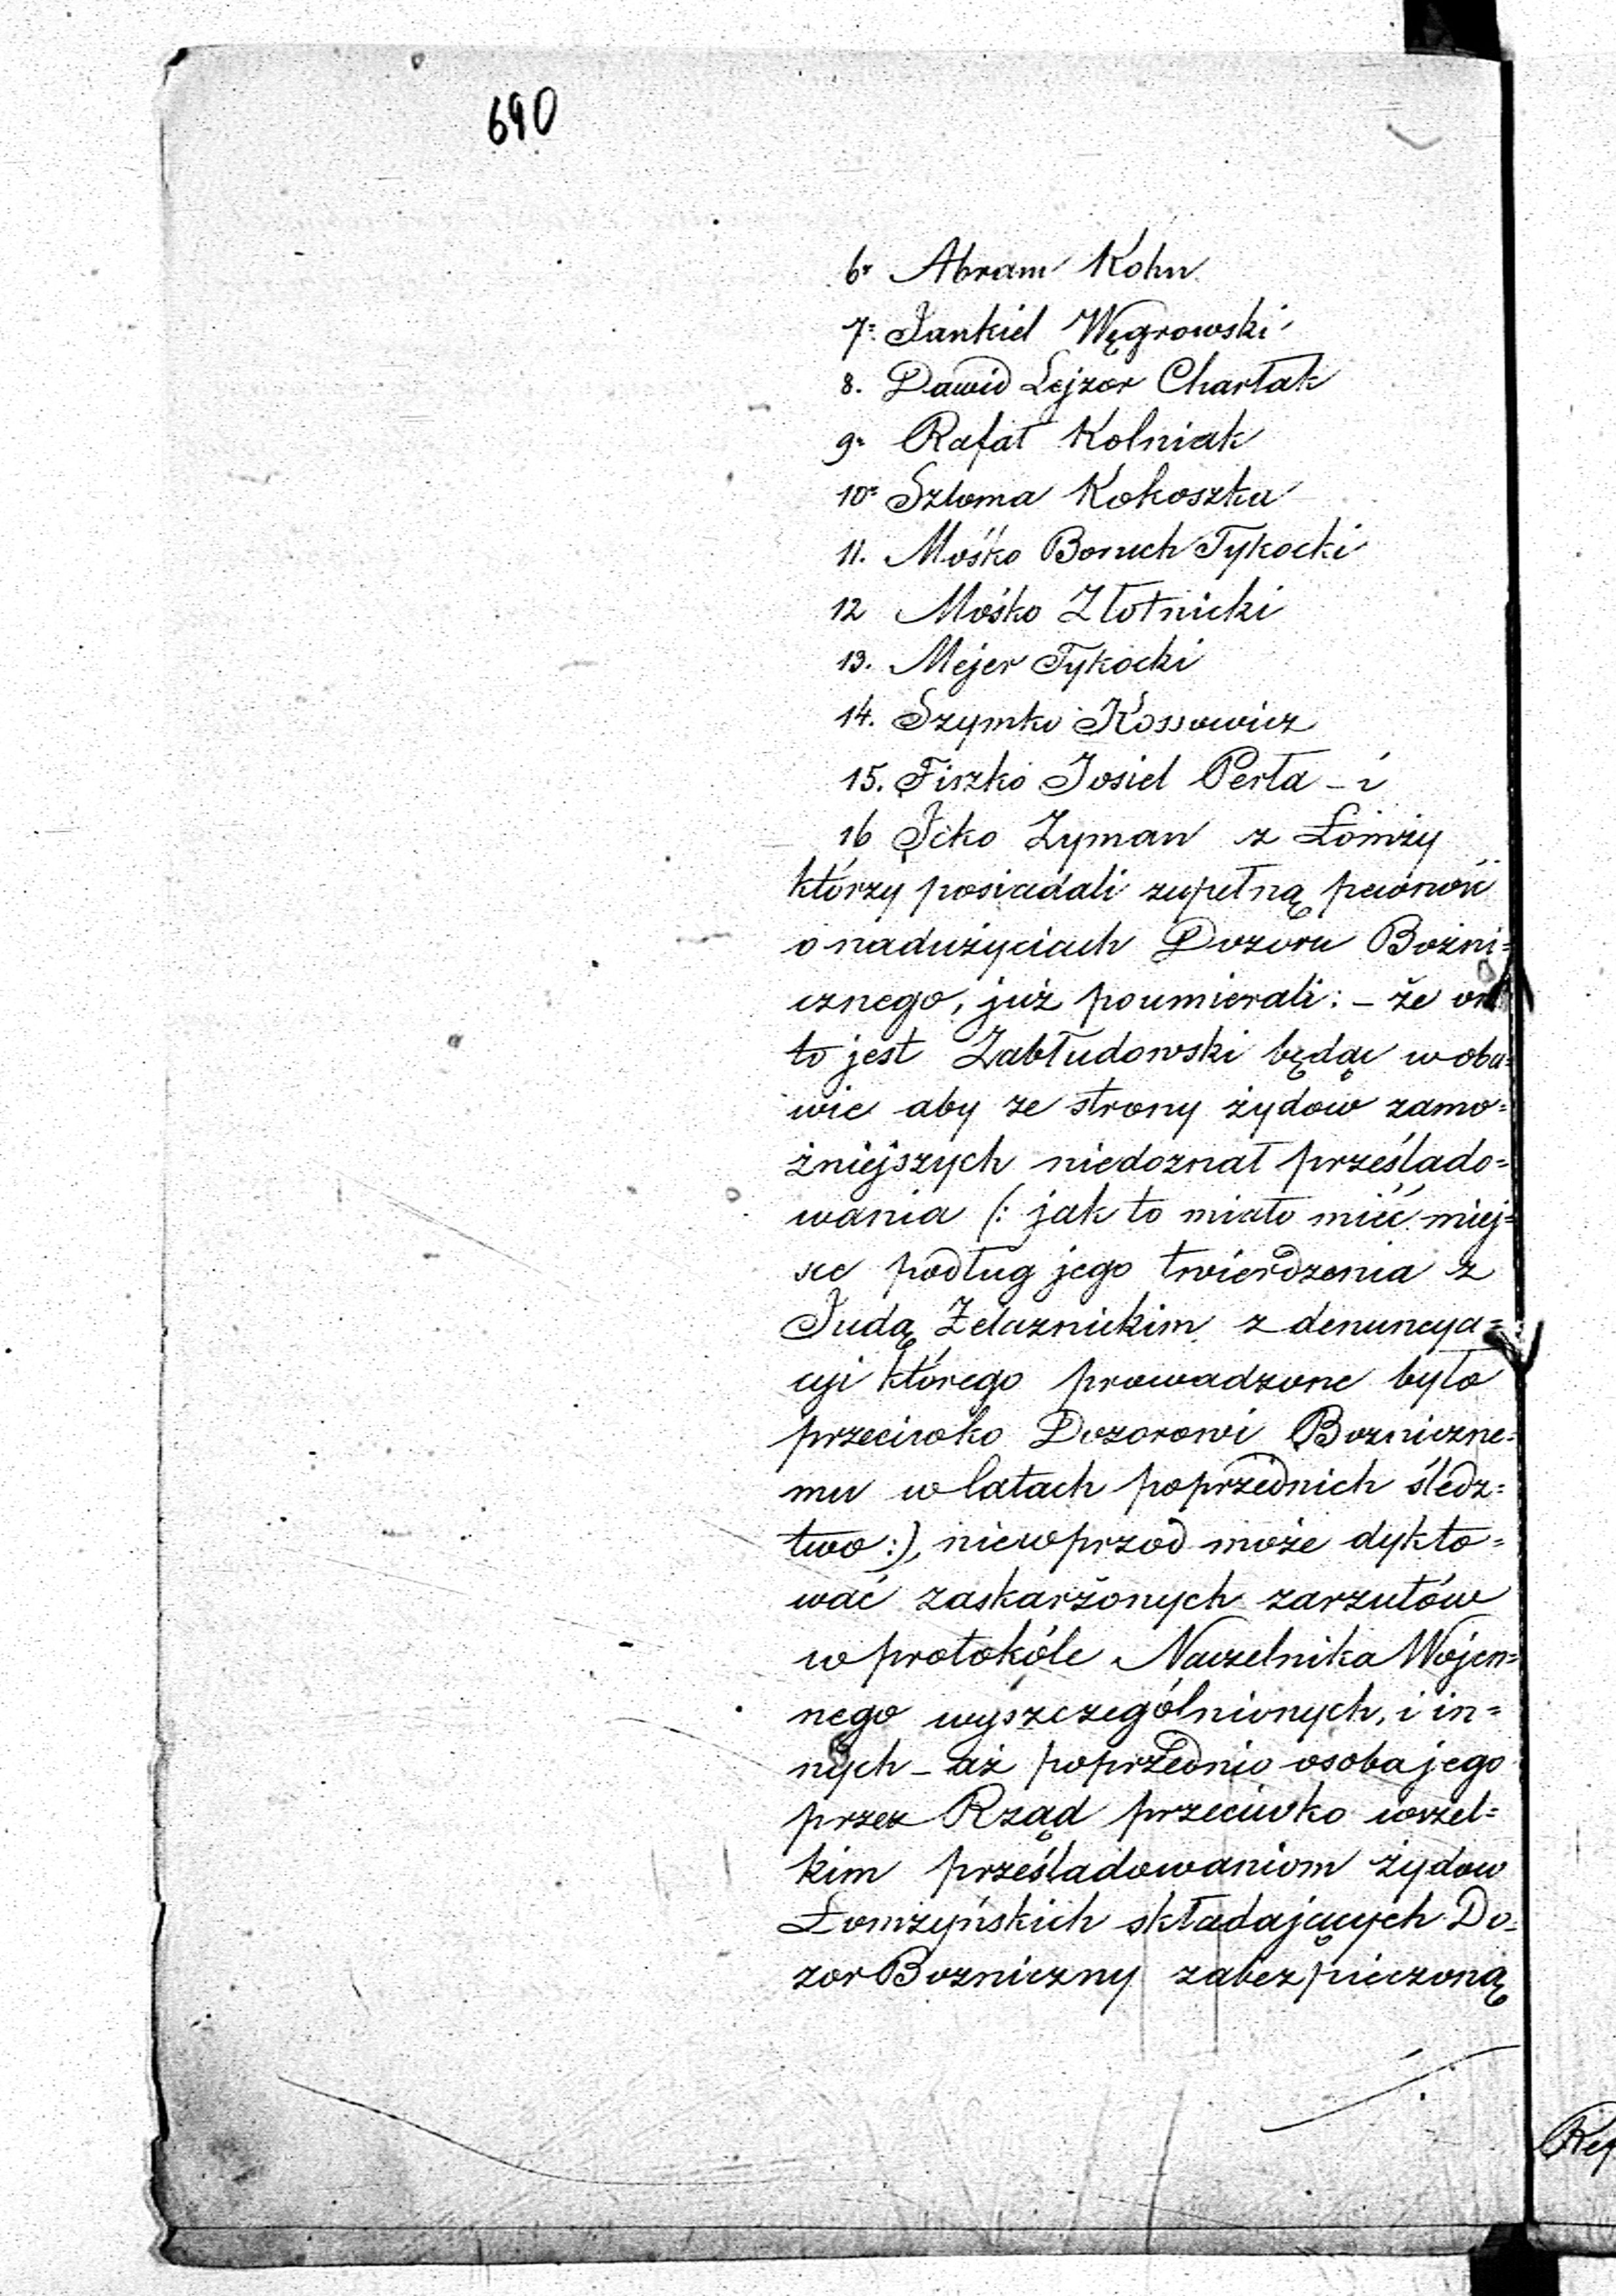 690
6. Abram Kohn
7. Jankiel Węgrowski
8. Dawid Lejzor Chartak
9. Rafał Kolniak
10. Szloma Kokoszka
11. Mośko Boruch Tykocki
12 Mośko Złotnicki
13. Mejer Tykocki
14. Szymko Kossowicz
15. Fiszko Josiel Perła - i
16 Icko Zyman z Łomży
którzy posiadali zupełną pewność
o nadużyciach Dozoru Bożni=
cznego, już poumierali: - że on
to jest Zabłudowski będąc w oba=
wie aby ze strony żydów zamo=
żniejszych niedoznał prześlado=
wania (: jak to miało mieć miej=
sce podług jego twierdzenia z
Judą Żelaznickim z denuncya=
cyi którego prowadzone było
przeciwko Dozorowi Bozniczne=
mu w latach poprzednich śledz=
two :), niewprzód może dykto=
wać zaskarżonych zarzutów
w protokóle Naczelnika Wojen=
nego wyszczególnionych, i in=
nych - aż poprzednio osoba jego
przez Rząd przeciwko wszel=
kim prześladowaniom żydow
Łomżyńskich składających Do=
zor Bozniczny zabezpieczoną
Rep